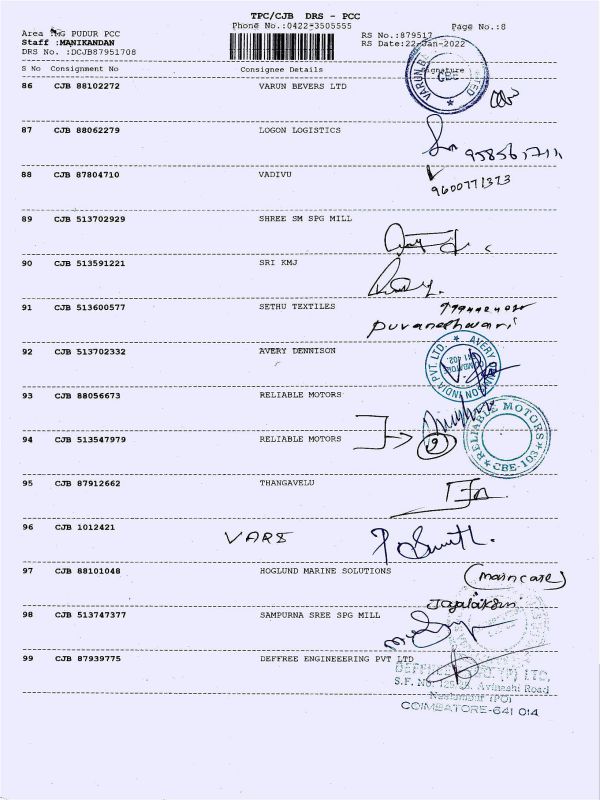 TPC/CJB DRS - PCC
Phone No.:0422-3505555 Page No.:8
Area : NG PUDUR PCC RS No.:879517
Staff :MANIKANDAN RS Date:22-Jan-2022
DRS No. :DCJB87951708
S No Consignment No Consignee Details Signature
86 CJB 88102272 VARUN BEVERS LTD
VARUN CBE
87 CJB 88062279 LOGON LOGISTICS
88 CJB 87804710 VADIVU
9600771373
89 CJB 513702929 SHREE SM SPG MILL
90 CJB 513591221 SRI KMJ
91 CJB 513600577 SETHU TEXTILES
puvaneshwari
92 CJB 513702332 AVERY DENNISON
AVERY DENNISON INDIA PVT. LTD. COIMBATORE 641 402
93 CJB 88056673 RELIABLE MOTORS
94 CJB 513547979 RELIABLE MOTORS
RELIABLE MOTORS CBE-103
95 CJB 87912662 THANGAVELU
96 CJB 1012421 VARS
97 CJB 88101048 HOGLUND MARINE SOLUTIONS
(maincare)
98 CJB 513747377 SAMPURNA SREE SPG MILL
99 CJB 87939775 DEFFREE ENGINEEERING PVT LTD
(P) LTD.
S.F. No. Avinashi Road
COIMBATORE-641 014